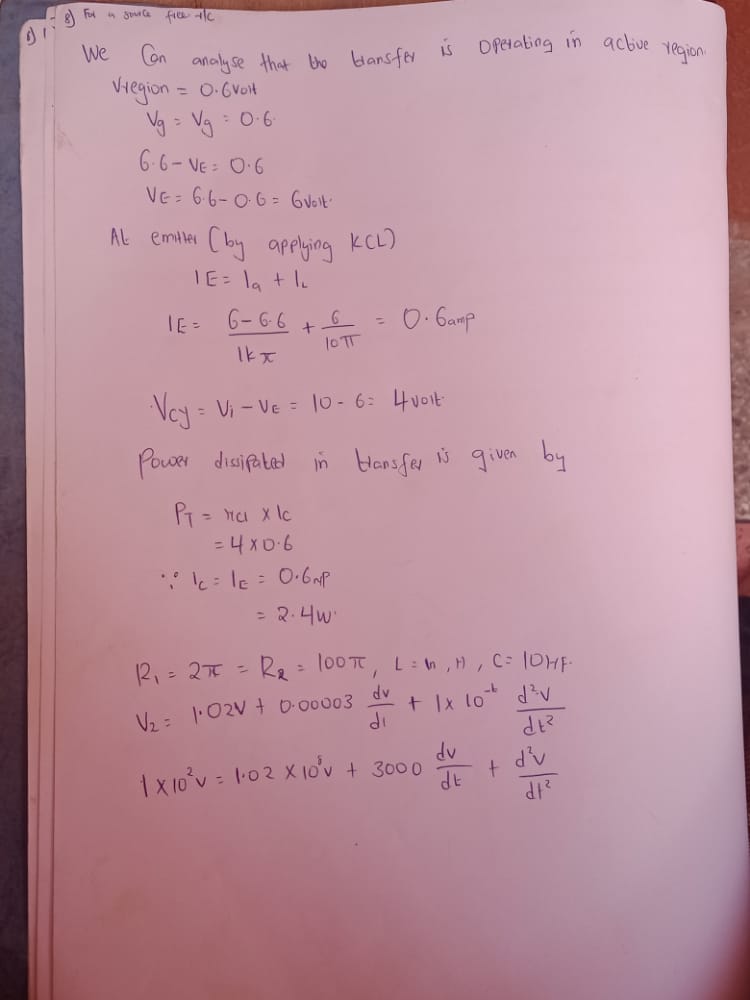 8) For a source free r/c
We Can analyse that the transfer is operating in active region.
Vregion = 0.6volt
Vg = Vg = 0.6
6.6 - VE = 0.6
VE = 6.6 - 0.6 = 6volt.
At emitter (by applying KCL)
IE = Ia + IL
IE = \frac{6-6.6}{1kπ} + \frac{6}{10π} = 0.6amp
Vcy = Vi - VE = 10 - 6 = 4volt.
Power dissipated in transfer is given by
PT = × Ic
= 4 × 0.6
∵ Ic = IE = 0.6
= 2.4w.
R1 = 2π = R2 = 100π, L = , H, C = 10HF.
V2 = 1.02V + 0.00003 \frac{dv}{d1} + 1 × 10^{-6} \frac{d²V}{dt²}
1 × 10²v = 1.02 × 10⁸v + 3000 \frac{dv}{dt} + \frac{d²v}{dt²}